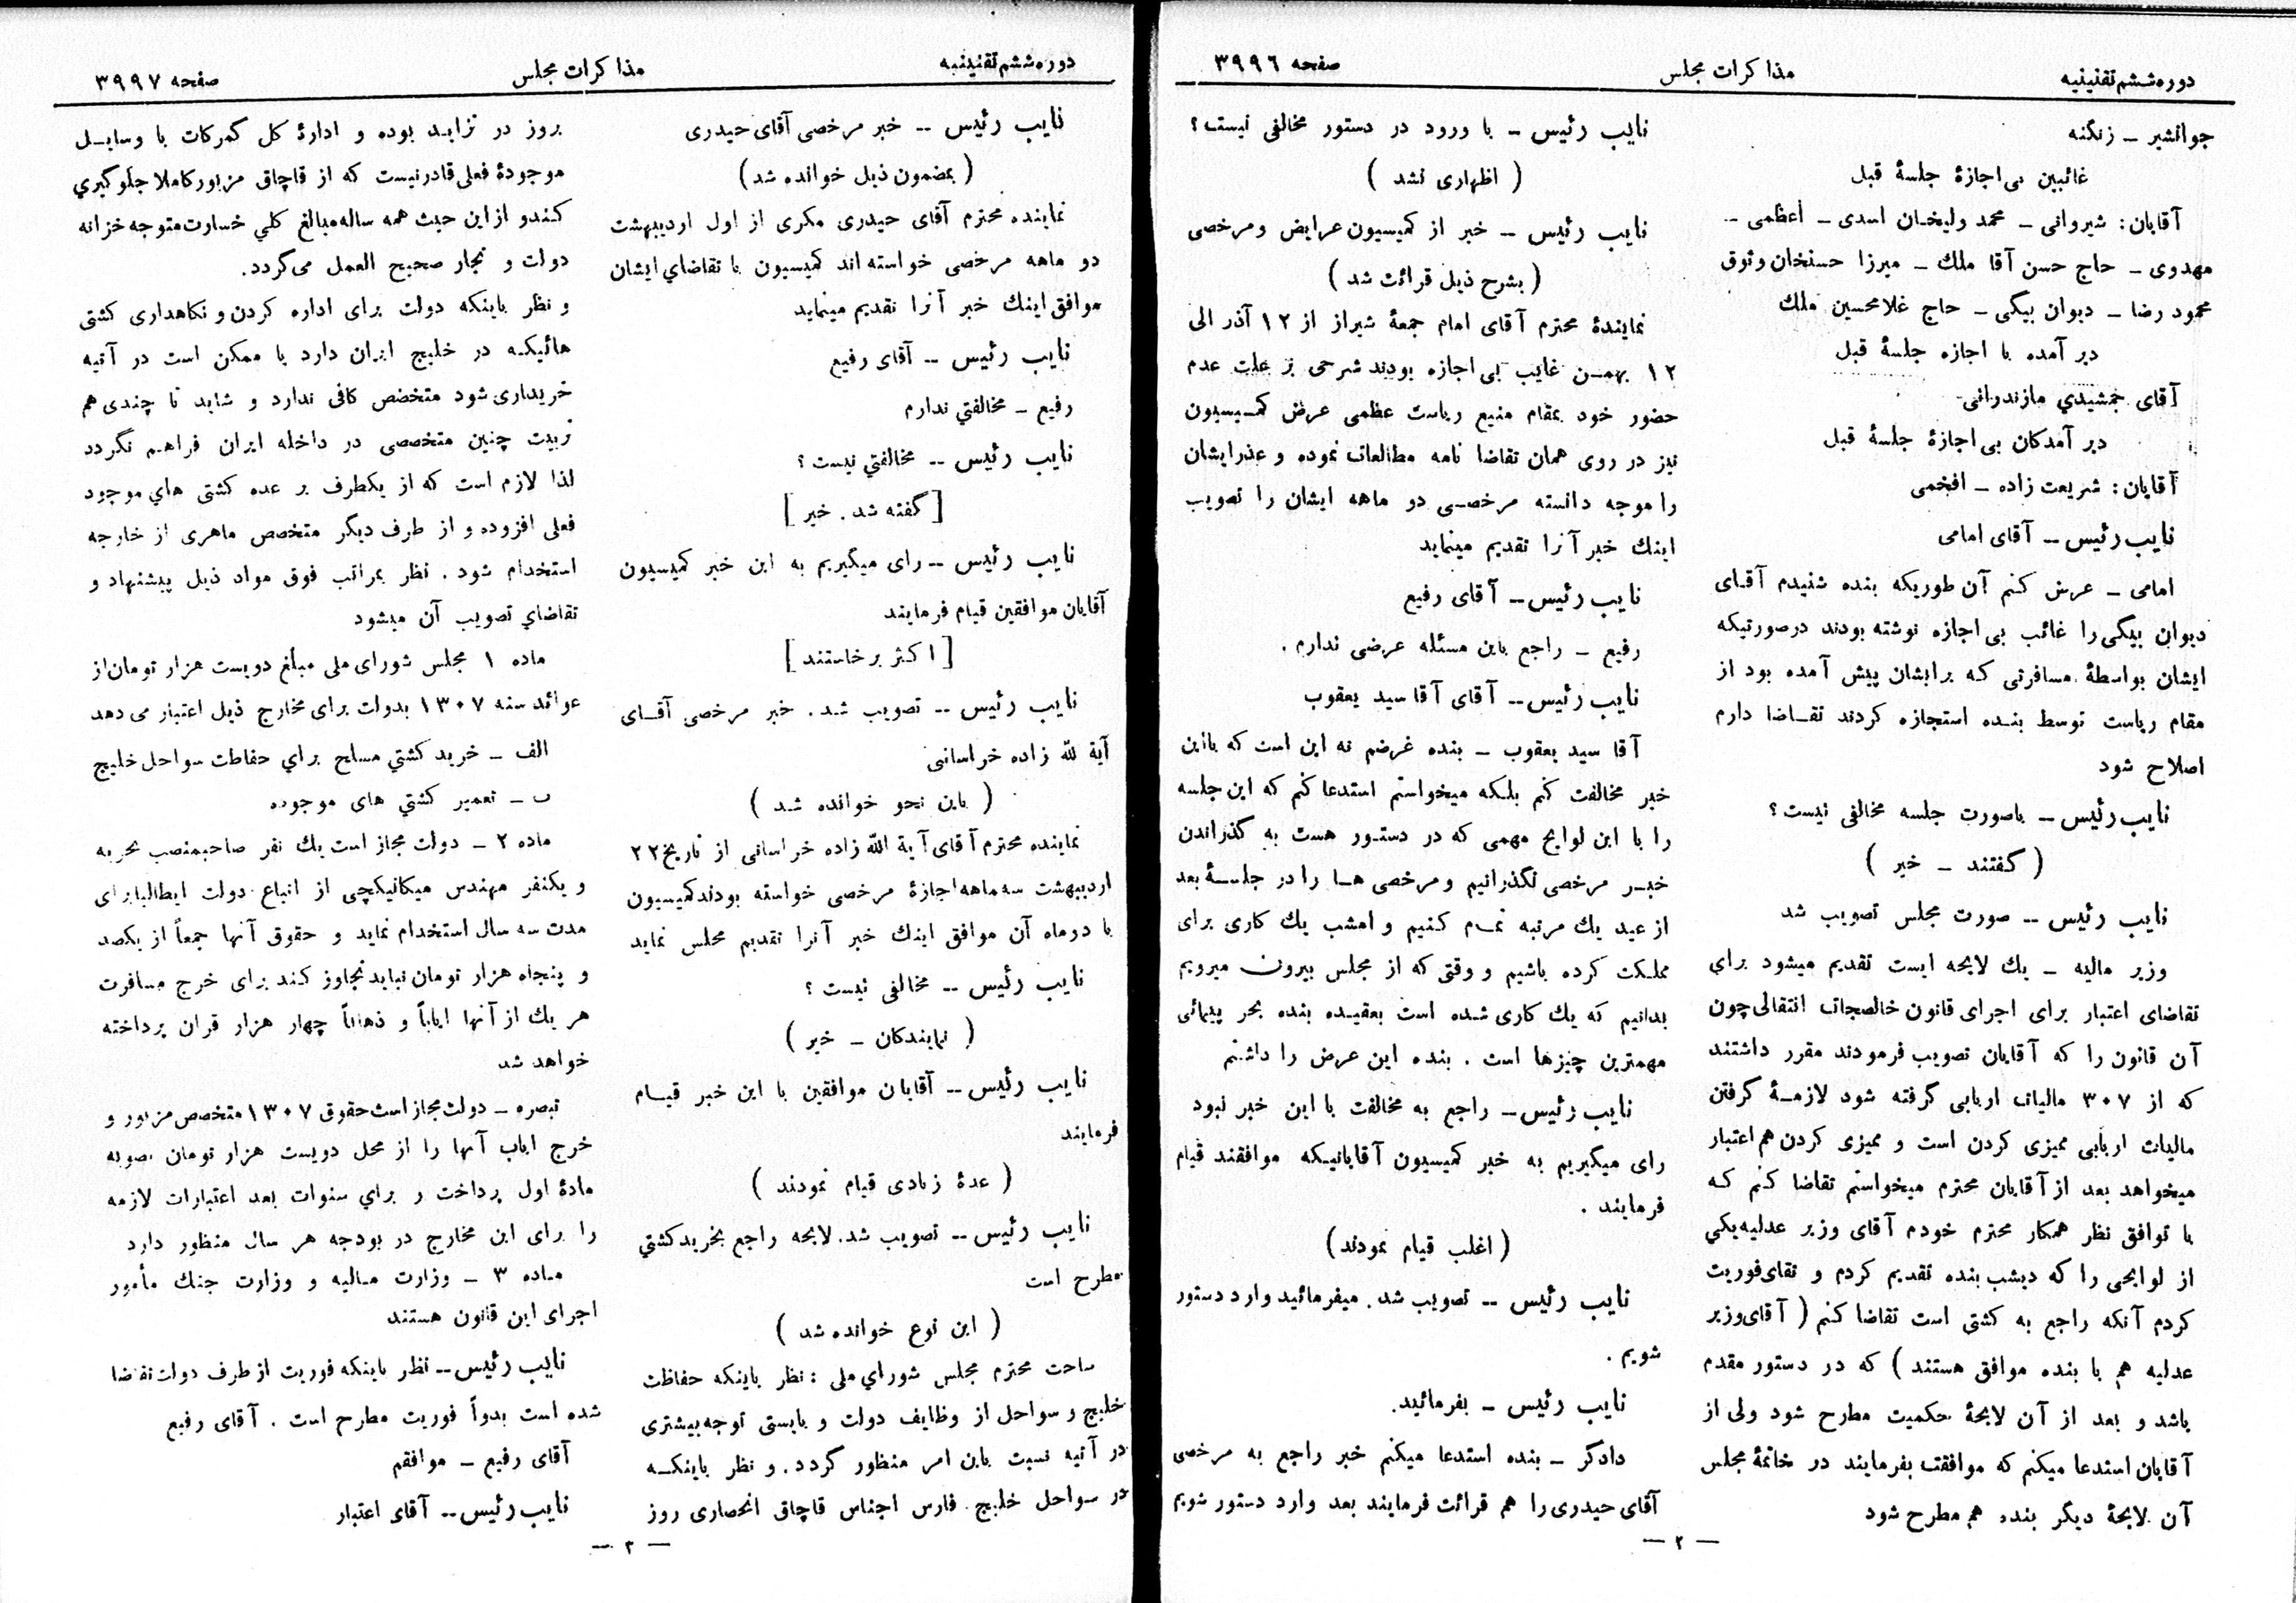 دوره ششم تقنینیه
مذاکرات مجلس
صفحه ۳۹۹۶
جوانشیر ــ زنگنه
غائبین بی‌اجازهٔ جلسهٔ قبل
آقایان: شیروانی ــ محمد ولیخان اسدی ــ أعظمی ــ
مهدوی ــ حاج حسن آقا ملك ــ میرزا حسنخان وثوق
محمود رضا ــ دیوان بیگی ــ حاج غلامحسین ملك
دیر آمده با اجازه جلسهٔ قبل
آقای جمشیدي مازندرانی
دیر آمدکان بی‌اجازهٔ جلسهٔ قبل
آقایان: شریعت زاده ــ افخمی
نایب رئیس ــ آقای امامی
امامی ــ عرض کنم آن طوریکه بنده شنیدم آقای
دیوان بیگی را غائب بی‌اجازه نوشته بودند درصورتیکه
ایشان بواسطهٔ مسافرتی که برایشان پیش آمده بود از
مقام ریاست توسط بنده استجازه کردند تقاضا دارم
اصلاح شود
نایب رئیس ــ باصورت جلسه مخالفی نیست؟
( گفتند ــ خیر )
نایب رئیس ــ صورت مجلس تصویب شد
وزیر مالیه ــ یك لایحه ایست تقدیم میشود برای
تقاضای اعتبار برای اجرای قانون خالصجات انتقالی چون
آن قانون را که آقایان تصویب فرمودند مقرر داشتند
که از ۳۰۷ مالیات اربابی گرفته شود لازمهٔ گرفتن
مالیات اربابی ممیزی کردن است و ممیزی کردن هم اعتبار
میخواهد بعد از آقایان محترم میخواستم تقاضا کنم که
با توافق نظر همکار محترم خودم آقای وزیر عدلیه یکی
از لوایحی را که دیشب بنده تقدیم کردم و تقای فوریت
کردم آنکه راجع به کشتی است تقاضا کنم ( آقای وزیر
عدلیه هم با بنده موافق هستند ) که در دستور مقدم
باشد و بعد از آن لایحهٔ حکمیت مطرح شود ولی از
آقایان استدعا میکنم که موافقت بفرمایند در خاتمهٔ مجلس
آن لایحهٔ دیگر بنده هم مطرح شود
نایب رئیس ــ با ورود در دستور مخالفی نیست؟
( اظهاری نشد )
نایب رئیس ــ خبر از کمیسیون عرایض و مرخصی
( بشرح ذیل قرائت شد )
نمایندهٔ محترم آقای امام جمعهٔ شیراز از ۱۲ آذر الی
۱۲ بهمن غایب بی‌اجازه بودند شرحی بر علت عدم
حضور خود بمقام منیع ریاست عظمی عرض کمیسیون
نیز در روی همان تقاضا نامه مطالعات نموده و عذرایشان
را موجه دانسته مرخصی دو ماهه ایشان را تصویب
اینك خبر آنرا تقدیم مینماید
نایب رئیس ــ آقای رفیع
رفیع ــ راجع باین مسئله عرضی ندارم.
نایب رئیس ــ آقای آقا سید یعقوب
آقا سید یعقوب ــ بنده غرضم نه این است که بااین
خبر مخالفت کنم بلکه میخواستم استدعا کنم که این جلسه
را با این لوایح مهمی که در دستور هست به گذراندن
خبر مرخصی نگذرانیم و مرخصی ها را در جلسهٔ بعد
از عید یك مرتبه تمام کنیم و امشب یك کاری برای
مملکت کرده باشیم و وقتی که از مجلس بیرون میرویم
بدانیم که یك کاری شده است بعقیده بنده بحر پیمائی
مهمترین چیزها است. بنده این عرض را داشتم
نایب رئیس ــ راجع به مخالفت با این خبر نبود
رای میگیریم به خبر کمیسیون آقایانیکه موافقند قیام
فرمایند.
(اغلب قیام نمودند)
نایب رئیس ــ تصویب شد. میفرمائید وارد دستور
شویم.
نایب رئیس ــ بفرمائید.
دادگر ــ بنده استدعا میکنم خبر راجع به مرخصی
آقای حیدری را هم قرائت فرمایند بعد وارد دستور شویم
— ۲ —
دوره ششم تقنینیه
مذاکرات مجلس
صفحه ۳۹۹۷
نایب رئیس ــ خبر مرخصی آقای حیدری
( بمضمون ذیل خوانده شد )
نماینده محترم آقای حیدری مکری از اول اردیبهشت
دو ماهه مرخصی خواسته اند کمیسیون با تقاضاي ایشان
موافق اینك خبر آنرا تقدیم مینماید
نایب رئیس ــ آقای رفیع
رفیع ــ مخالفتي ندارم
نایب رئیس ــ مخالفتي نیست؟
[ گفته شد. خیر ]
نایب رئیس ــ رای میگیریم به این خبر کمیسیون
آقایان موافقین قیام فرمایند
[ اکثر برخاستند ]
نایب رئیس ــ تصویب شد. خبر مرخصی آقای
آیة لله زاده خراسانی
( باین نحو خوانده شد )
نماینده محترم آقای آیة الله زاده خراسانی از تاریخ ۲۲
اردیبهشت سه ماهه اجازهٔ مرخصی خواسته بودند کمیسیون
با دوماه آن موافق اینك خبر آنرا تقدیم مجلس نماید
نایب رئیس ــ مخالفی نیست؟
( نمایندکان ــ خیر )
نایب رئیس ــ آقایان موافقین با این خبر قیام
فرمایند
( عدهٔ زیادی قیام نمودند )
نایب رئیس ــ تصویب شد. لایحه راجع بخرید کشتي
مطرح است
( این نوع خوانده شد )
ساحت محترم مجلس شوراي ملی: نظر باینکه حفاظت
خلیج و سواحل از وظایف دولت و بایستی توجه بیشتری
در آتیه نسبت باین امر منظور گردد. و نظر باینکه
در سواحل خلیج فارس اجناس قاچاق انحصاری روز
بروز در تزاید بوده و ادارهٔ کل گمرکات با وسایل
موجودهٔ فعلی قادر نیست که از قاچاق مزبور کاملا جلوگیري
کند و از این حیث همه ساله مبالغ کلي خسارت متوجه خزانه
دولت و تجار صحیح العمل می‌گردد.
و نظر باینکه دولت برای اداره کردن و نکاهداری کشتی
هائیکه در خلیج ایران دارد یا ممکن است در آتیه
خریداری شود متخصص کافی ندارد و شاید تا چندی هم
تربیت چنین متخصصی در داخله ایران فراهم نگردد
لذا لازم است که از یکطرف بر عده کشتی هاي موجود
فعلی افزوده و از طرف دیگر متخصص ماهری از خارجه
استخدام شود. نظر بمراتب فوق مواد ذیل پیشنهاد و
تقاضاي تصویب آن میشود
ماده ۱ مجلس شورای ملی مبلغ دویست هزار تومان از
عوائد سنه ۱۳۰۷ بدولت برای مخارج ذیل اعتبار می‌دهد
الف ــ خرید کشتي مسلح براي حفاظت سواحل خلیج
ب ــ تعمیر کشتي های موجوده
ماده ۲ ــ دولت مجاز است یك نفر صاحبمنصب بحریه
و یکنفر مهندس میکانیکچی از اتباع دولت ایطالیا برای
مدت سه سال استخدام نماید و حقوق آنها جمعاً از یکصد
و پنجاه هزار تومان نباید تجاوز کند برای خرج مسافرت
هر یك از آنها ایاباً و ذهاباً چهار هزار قران پرداخته
خواهد شد
تبصره ــ دولت مجاز است حقوق ۱۳۰۷ متخصص مزبور و
خرج ایاب آنها را از محل دویست هزار تومان مصوبه
مادهٔ اول پرداخت و براي سنوات بعد اعتبارات لازمه
را برای این مخارج در بودجه هر سال منظور دارد
ماده ۳ ــ وزارت مالیه و وزارت جنك مأمور
اجرای این قانون هستند
نایب رئیس ــ نظر باینکه فوریت از طرف دولت تقاضا
شده است بدواً فوریت مطرح است. آقای رفیع
آقای رفیع ــ موافقم
نایب رئیس ــ آقای اعتبار
— ۳ —